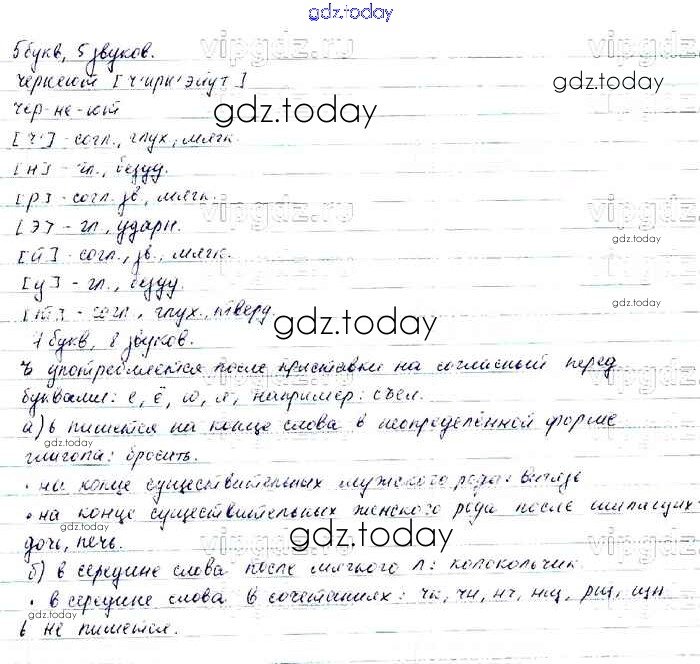 gdz.today
5 букв, 5 звуков.
vipgdz.ru
vipgdz.ru
чернеют [ч'ирн'эйут]
gdz.today
gdz.today
чер-не-ют
[ч'] - согл., глух., мягк.
[и] - гл., безуд.
[р] - согл. зв., мягк.
vipgdz.ru
vipgdz.ru
[э] - гл., ударн.
gdz.today
[й] - согл., зв., мягк.
[у] - гл., безуд.
gdz.today
[т] - согл., глух., тверд.
gdz.today
vipgdz.ru
7 букв, 8 звуков.
ъ употребляется после приставки на согласный перед
буквами: е, ё, ю, я, например: съел.
а) ь пишется на конце слова в неопределённой форме
gdz.today
глагола: бросить.
• на конце существительных мужского рода:
• на конце существительных женского рода после шипящих
gdz.today
gdz.today
дочь, печь.
vipgdz.ru
б) в середине слова после мягкого л: колокольчик
• в середине слова в сочетаниях: чк, чн, нч, нщ, рщ, щн
ь не пишется.